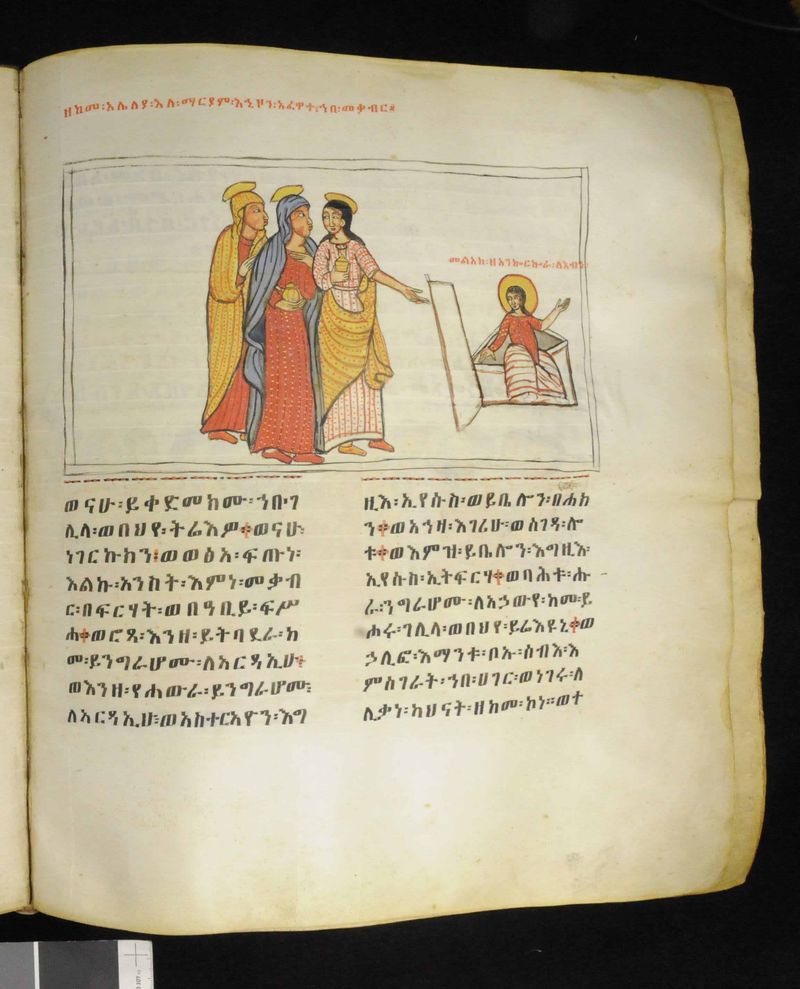 ዘከመ፡አሌለያ፡እለ፡ማርያም፡እኂዞን፡አፈዋተ፡ኀበ፡መቃብር፨
መልአክ፡ዘአንኰርኰራ፡ለእብን፡
ወናሁ፡ይቀድመክሙ፡ኀበ፡ገ
ሊላ፡ወበህየ፡ትሬእዎ፡ወናሁ፡
ነገርኩክን፡ወወፅአ፡ፍጡነ፡
እልኩ፡አንስት፡እምነ፡መቃብ
ር፡በፍርሃት፡ወበዓቢይ፡ፍሥ
ሐ፡ወሮጻ፡እንዘ፡ይትባደራ፡ከ
መ፡ይንግራሆሙ፡ለአርዳኢሁ፡
ወእንዘ፡የሐውራ፡ይንግራሆሙ፡
ለአርዳኢሁ፡ወአስተርአዮን፡እግ
ዚእ፡ኢየሱስ፡ወይቤሎን፡በሐክ
ን፡ወአኀዛ፡እገሪሁ፡ወሰገዳ፡ሎ
ቱ፡ወእምዝ፡ይቤሎን፡እግዚእ፡
ኢየሱስ፡ኢትፍርሃ፡ወባሕቱ፡ሑ
ራ፡ንግራሆሙ፡ለአኃውየ፡ከመ፡ይ
ሐሩ፡ገሊላ፡ወበህየ፡ይሬእዩኒ፡ወ
ኃሊፎ፡እማንቱ፡ቦኡ፡ሰብእ፡እ
ምሰገራት፡ኀበ፡ሀገር፡ወነገሩ፡ለ
ሊቃነ፡ካህናት፡ዘከመ፡ኮነ፡፡ወተ